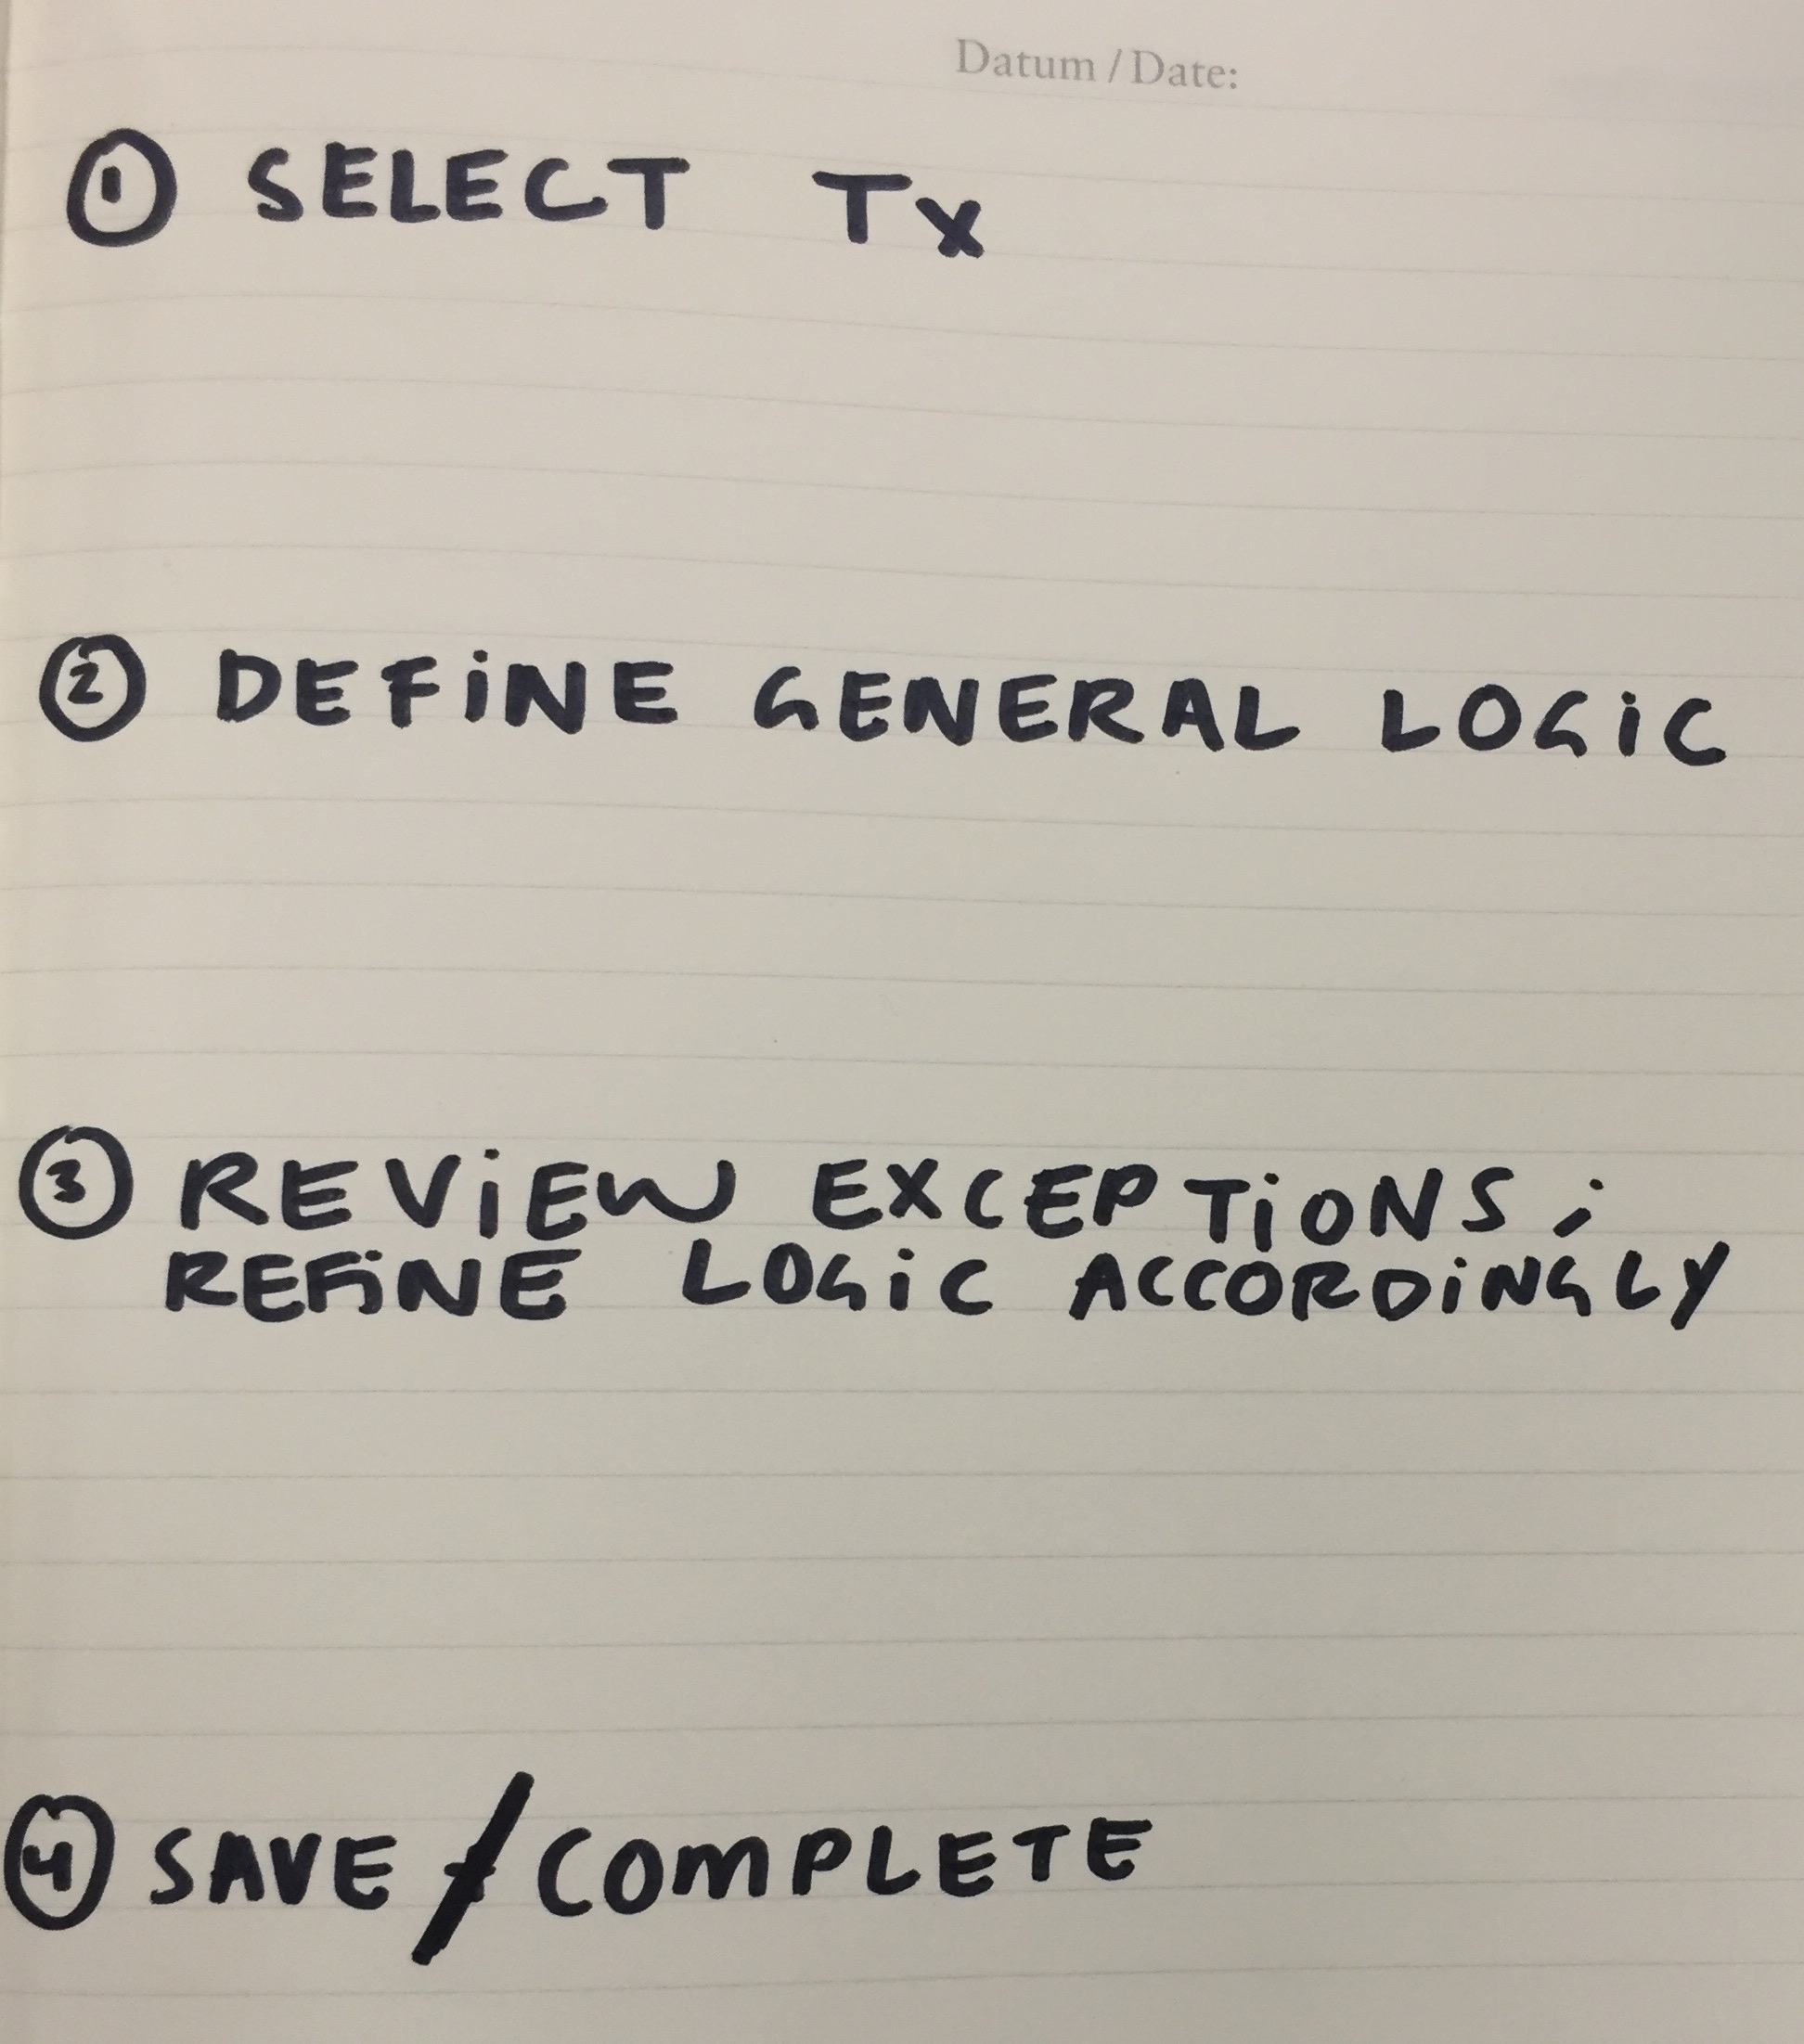 Datum / Date:
① SELECT Tx
② DEFiNE GENERAL LOGiC
③ REViEW EXCEPTiONS;
REFiNE LOGiC ACCORDiNGLY
④ SAVE / COMPLETE